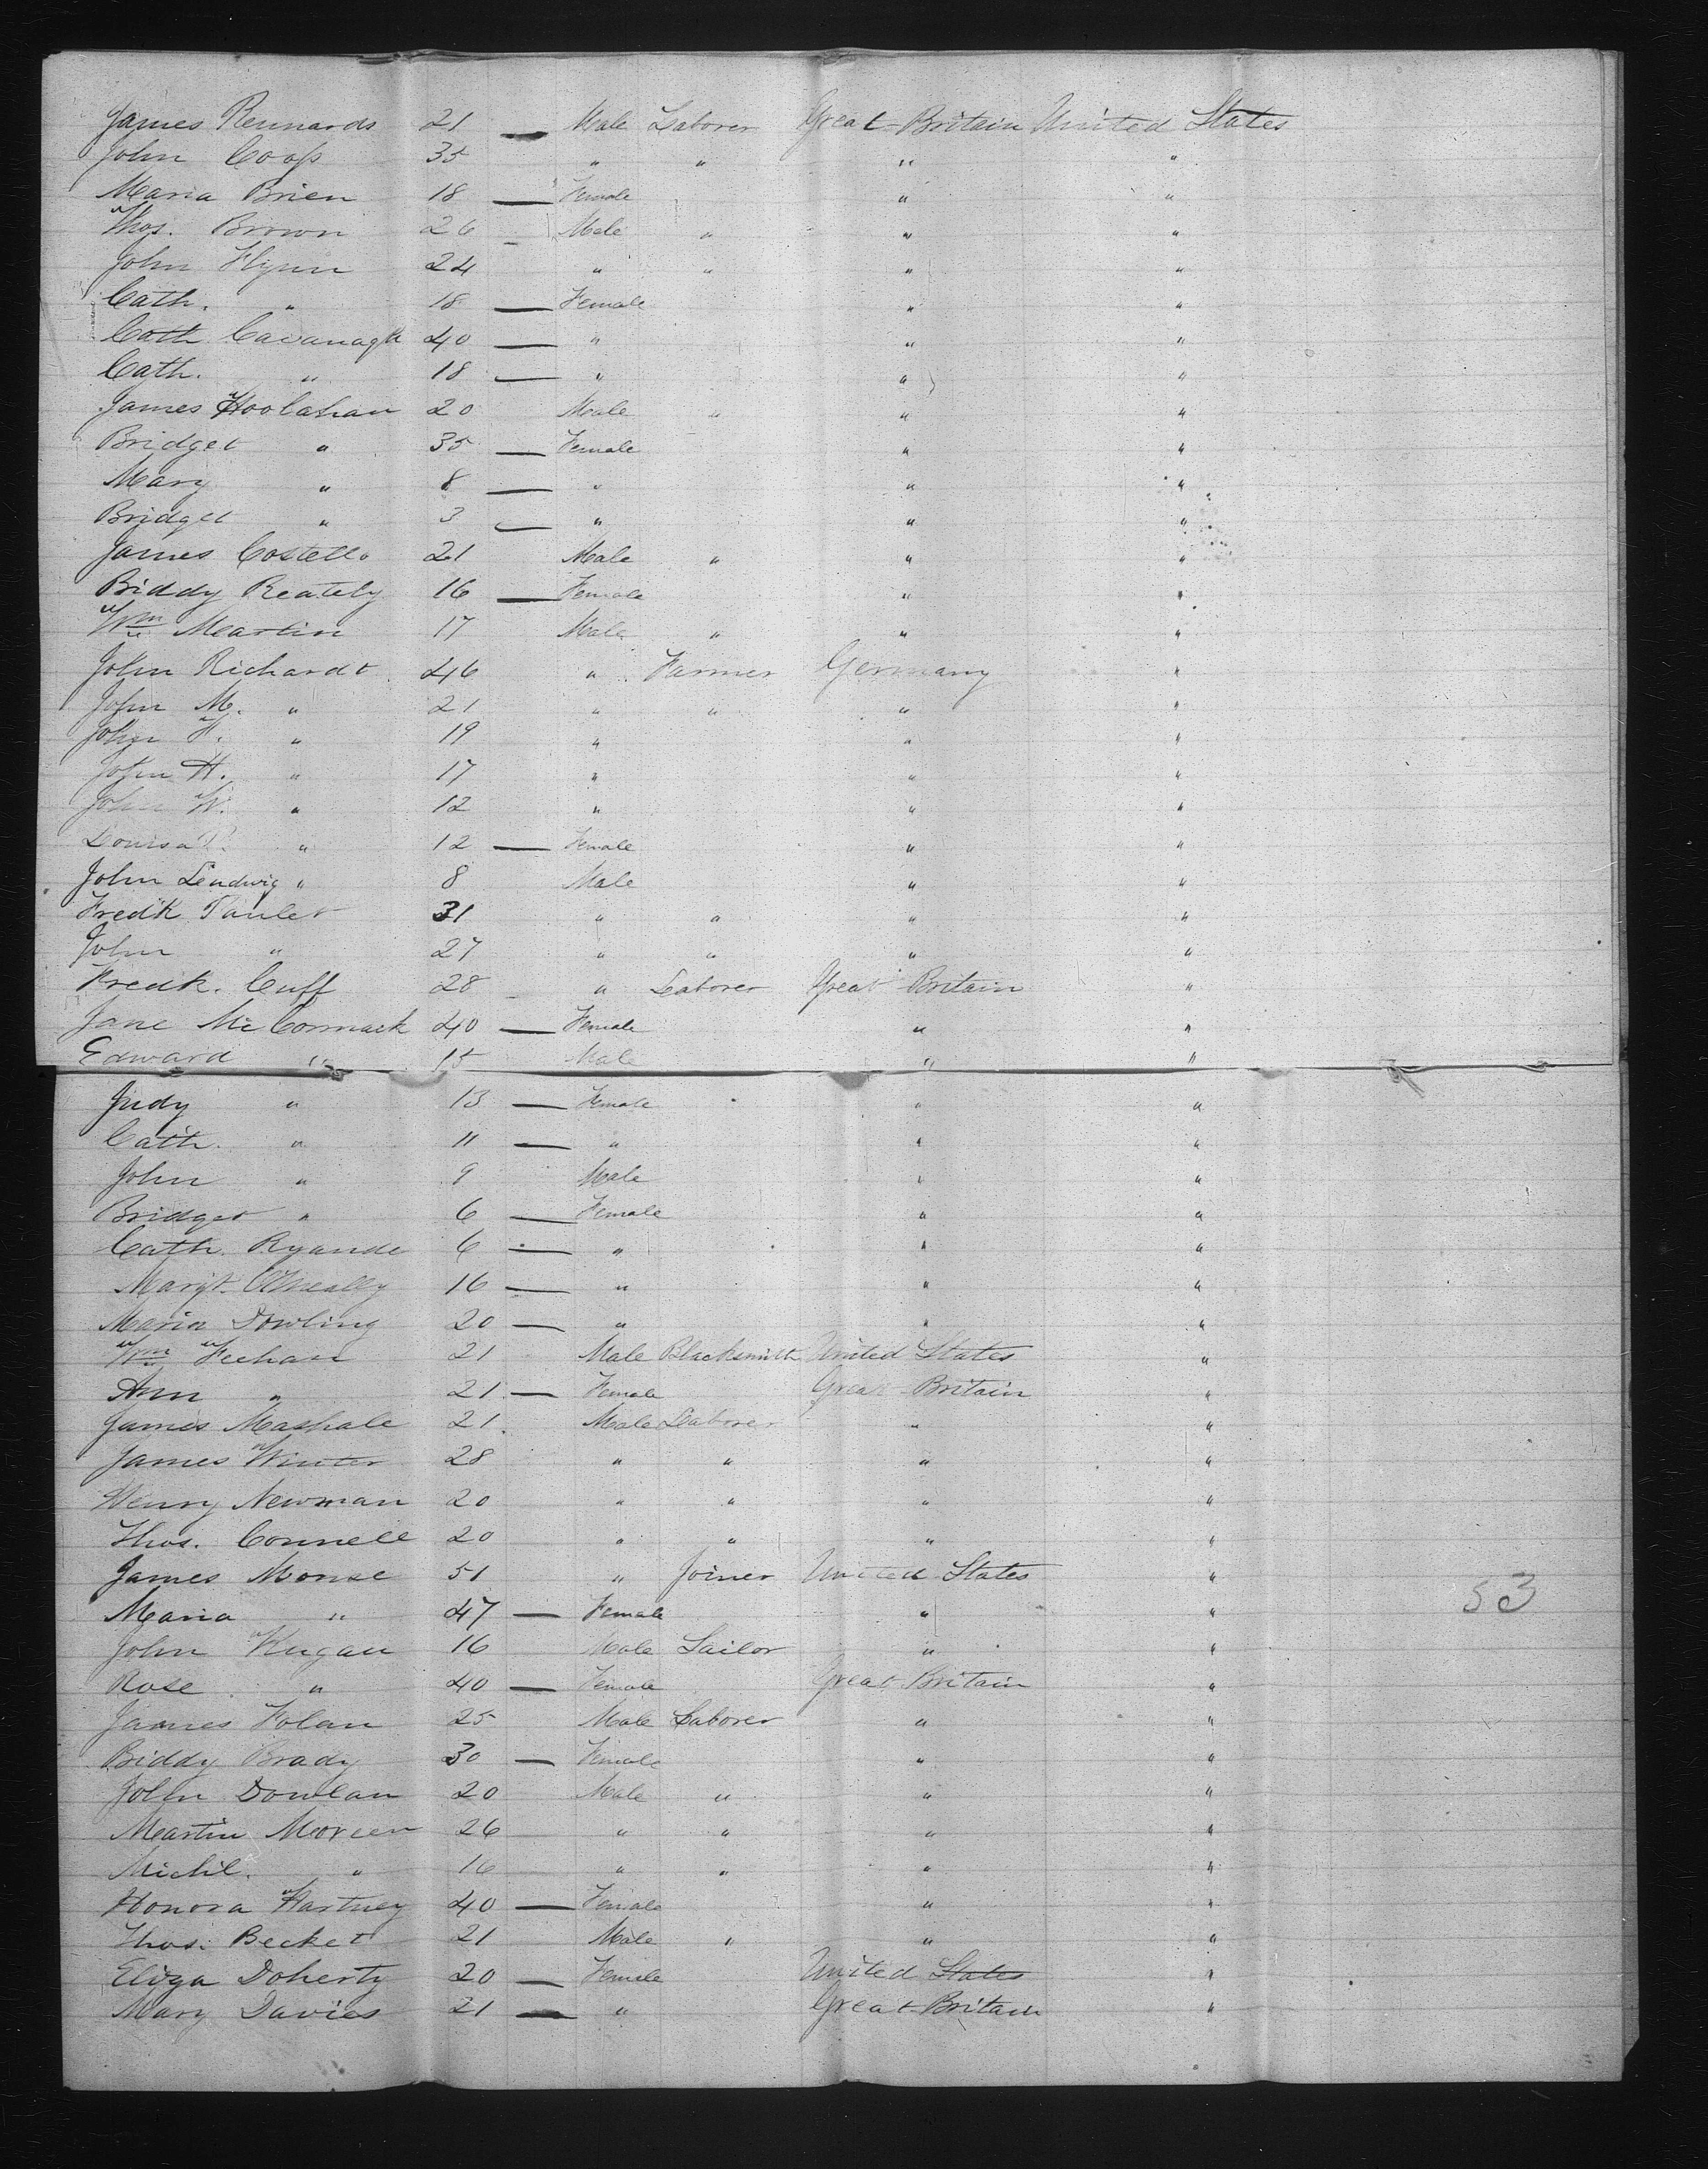 James Rennards 21 Male Laborer Great Britain United States
John Coop 35 " " " "
Maria Brien 18 Female " "
Thos. Brown 26 Male " " "
John Flynn 24 " " " "
Cath. " 18 Female " "
Cath Cavanagh 40 " " "
Cath. " 18 " " "
James Hoolahan 20 Male " " "
Bridget " 35 Female " "
Mary " 8 " " "
Bridget " 3 " " "
James Costello 21 Male " " "
Biddy Reately 16 Female " "
Wm Martin 17 Male " " "
John Richardt 46 " Farmer Germany "
John M. " 21 " " " "
John F. " 19 " " "
John H. " 17 " " "
John W. " 12 " " "
Louisa " 12 Female " "
John Lendwig " 8 Male " "
Fredk Taulet 31 " " " "
John " 27 " " " "
Fredk. Cuff 28 " Laborer Great Britain "
Jane McCormack 40 Female " "
Edward " 15 Male " "
Judy " 13 Female " "
Cath. " 11 " " "
John " 9 Male " "
Bridget " 6 Female " "
Cath. Ryande 6 " " "
Margt. 16 " " "
Maria Dowling 20 " " "
Wm Feehan 21 Male Blacksmith United States "
Ann " 21 Female Great Britain "
James Mashale 21 Male Laborer " "
James Winter 28 " " " "
Henry Newman 20 " " " "
Thos. Connell 20 " " " "
James Monse 51 " Joiner United States "
Maria " 47 Female " "
John Kugan 16 Male Sailor " "
Rose " 40 Female Great Britain "
James Folan 25 Male Laborer " "
Biddy Brady 30 Female " "
John Donlan 20 Male " " "
Martin Moreen 26 " " " "
Michl. " 16 " " " "
Honora Hartney 40 Female " "
Thos. Becket 21 Male " " "
Eliza Doherty 20 Female United States "
Mary Davies 21 " Great Britain "
53